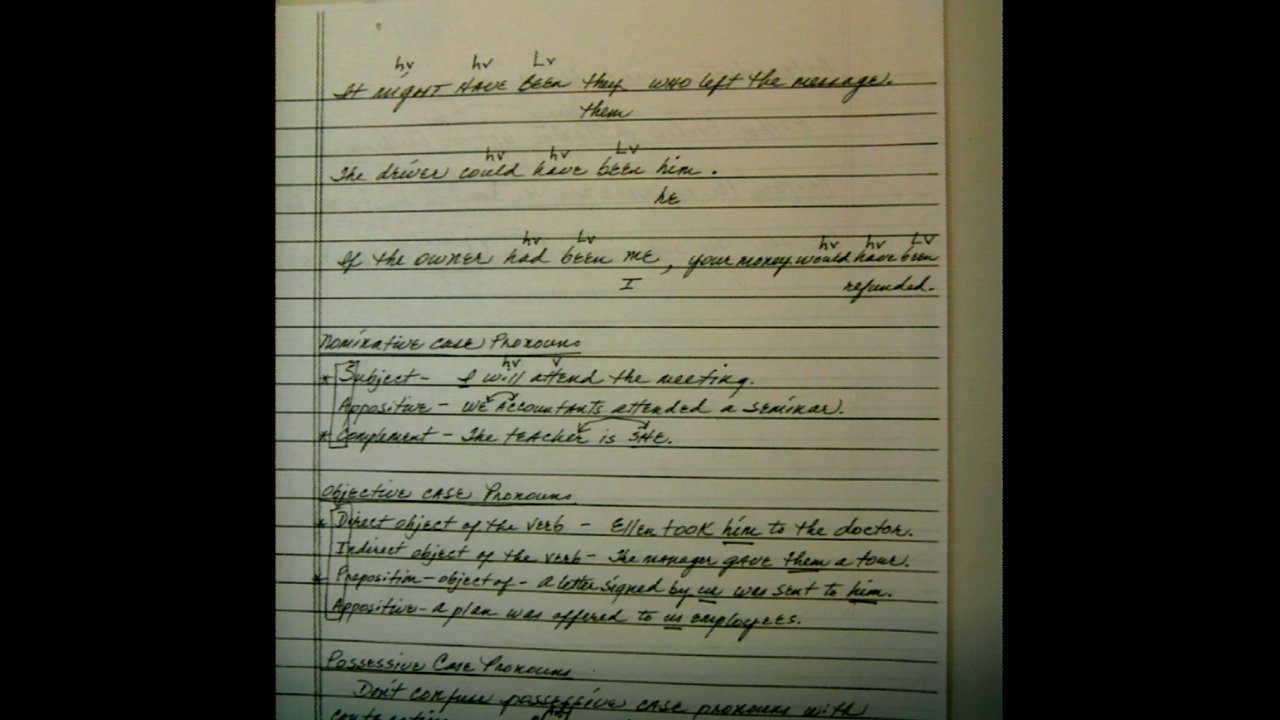 hv hv Lv
It might have been they who left the message.
them
hv hv Lv
The driver could have been him.
he
hv Lv hv hv Lv
If the owner had been me, your money would have been
I refunded.
Nominative case Pronouns
hv v
* Subject - I will attend the meeting.
Appositive - we accountants attended a seminar.
* Complement - The teacher is she.
Objective case Pronouns
* Direct object of the verb - Ellen took him to the doctor.
Indirect object of the verb - The manager gave them a tour.
* Preposition - object of - a letter signed by us was sent to him.
Appositive - a plan was offered to us employees.
Possessive Case Pronouns
Don't confuse possessive case pronouns with